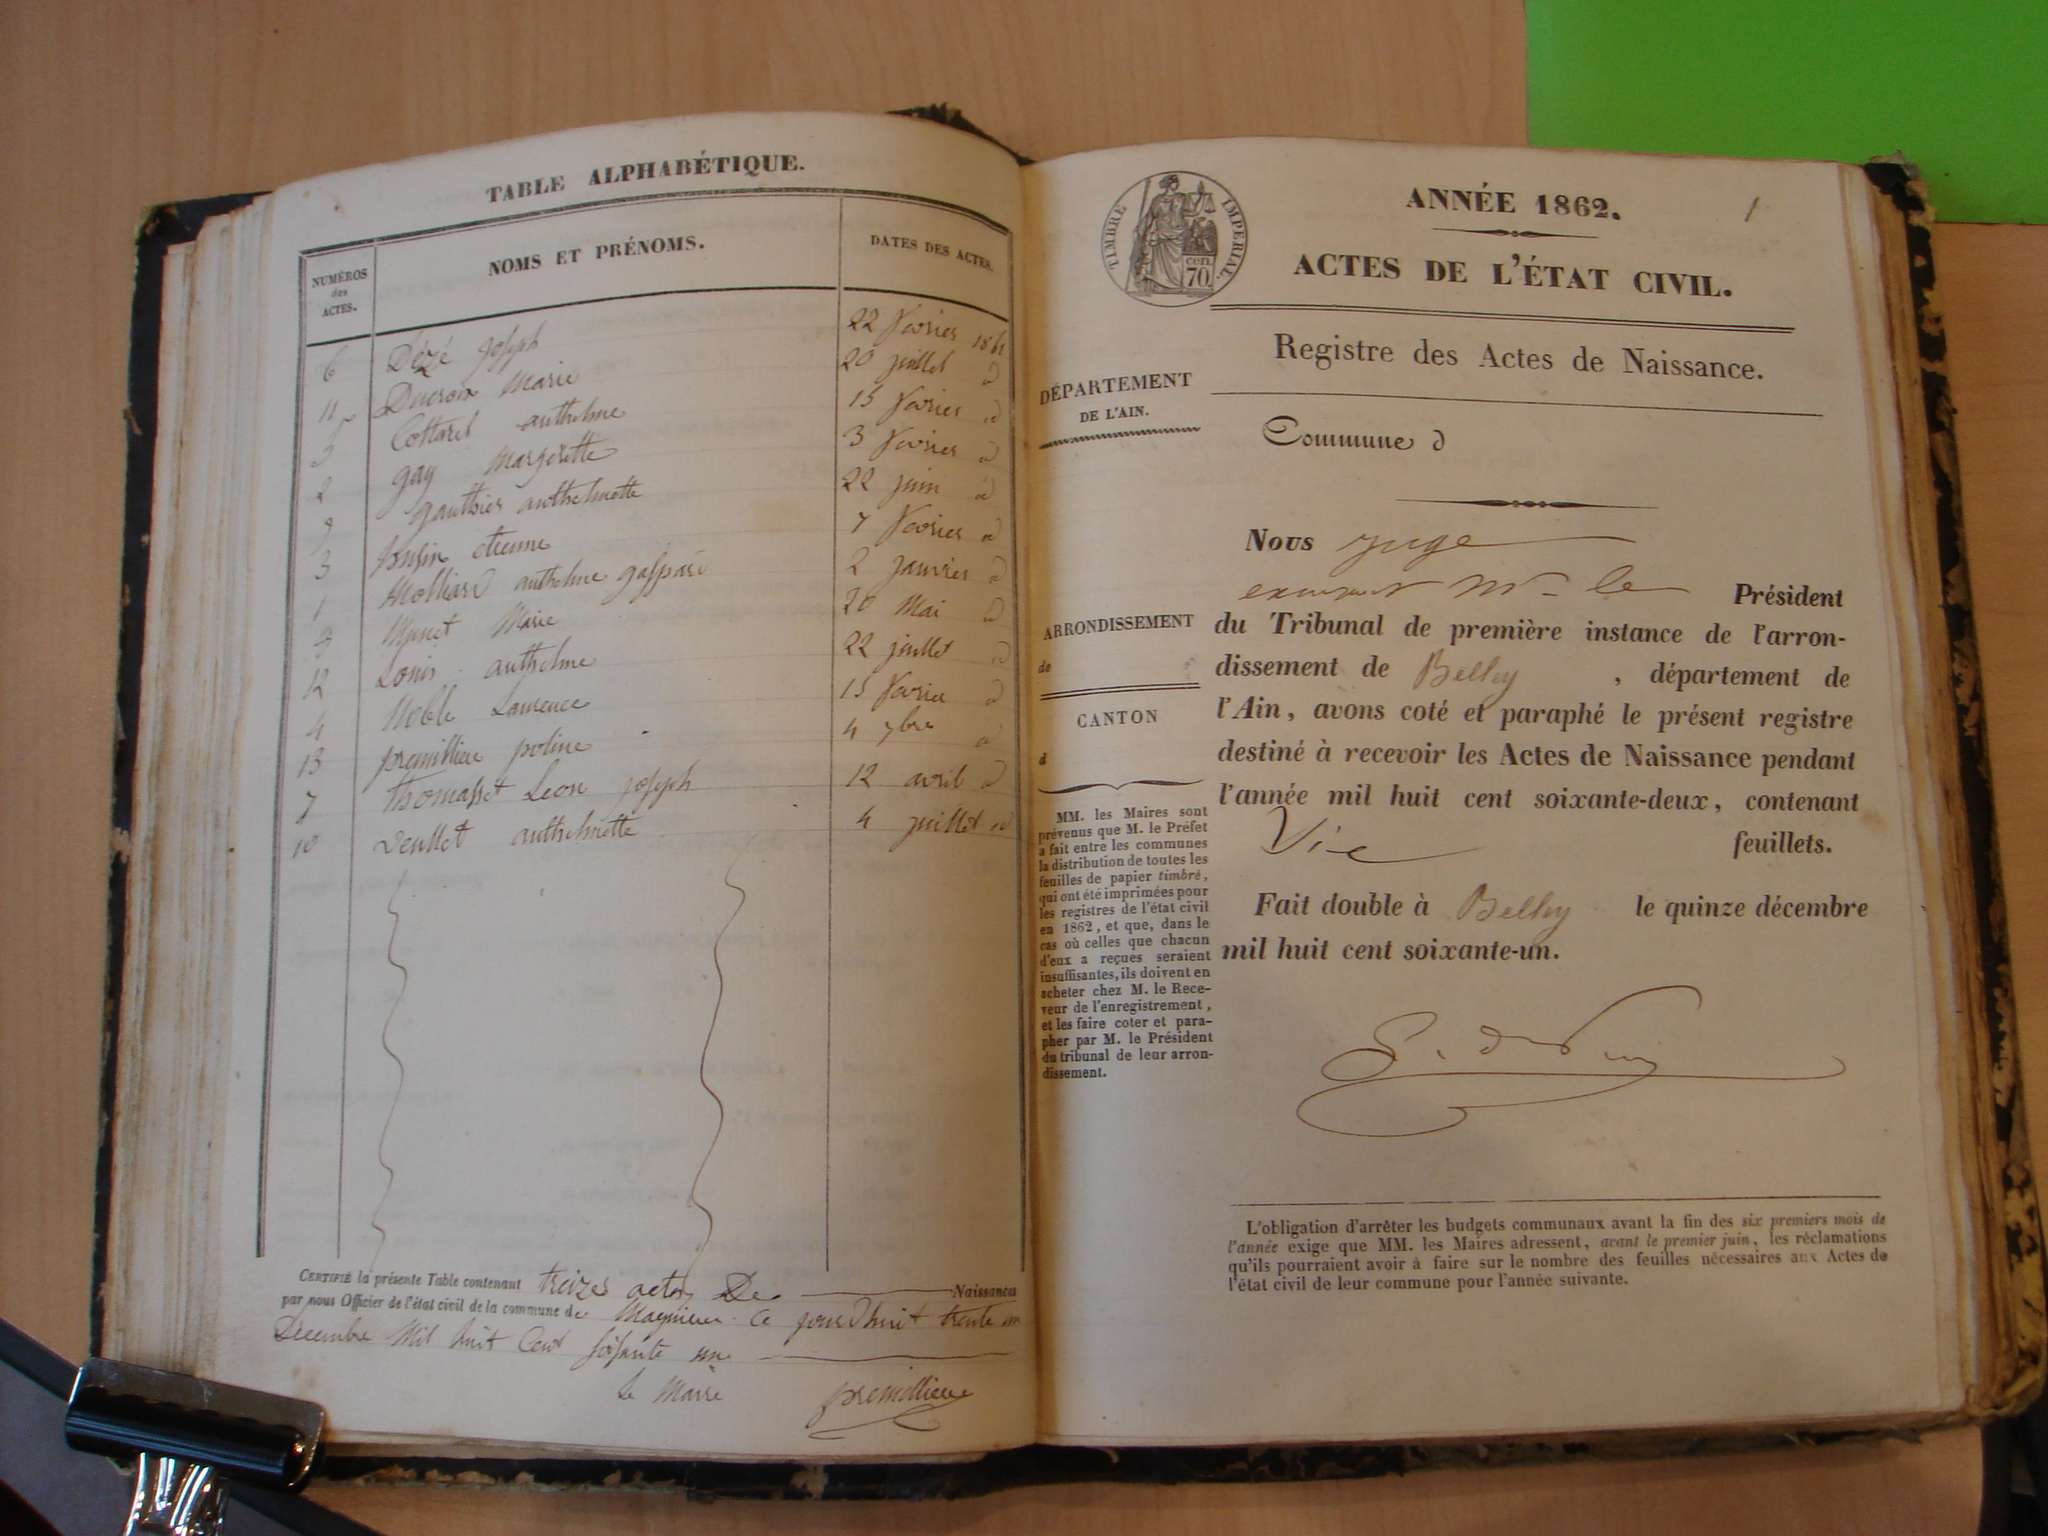 TABLE ALPHABÉTIQUE.
NUMÉROS des ACTES.
NOMS ET PRÉNOMS.
DATES DES ACTES.
6 Dézé joseph 22 fevrier 1861
11 Ducroix Marie 20 juillet d
5 Cottarel anthelme 15 fevrier d
2 gay Margeritte 3 fevrier d
9 gauthier anthelmette 22 juin d
3 etienne 7 fevrier d
1 Molliard anthelme gaspard 2 janvier d
Marie 20 Mai d
12 Louis anthelme 22 juillet d
4 Noble Laurence 15 fevrier d
13 premillieu poline 4 7bre d
7 thomasset Leon joseph 12 avril d
10 Veullet anthelmette 4 juillet d
CERTIFIÉ la présente Table contenant treizes actes De Naissances
par nous Officier de l'état civil de la commune de Magnieu Ce jourd'huit trente un
Decembre Mil huit Cent soisante un
le Maire premillieu
TIMBRE IMPERIAL
cen. 70.
ANNÉE 1862.
1
ACTES DE L'ÉTAT CIVIL.
Registre des Actes de Naissance.
DÉPARTEMENT
DE L'AIN.
Commune d
ARRONDISSEMENT
de
CANTON
d
MM. les Maires sont
prévenus que M. le Préfet
a fait entre les communes
la distribution de toutes les
feuilles de papier timbré,
qui ont été imprimées pour
les registres de l'état civil
en 1862, et que, dans le
cas où celles que chacun
d'eux a reçues seraient
insuffisantes, ils doivent en
acheter chez M. le Rece-
veur de l'enregistrement,
et les faire coter et para-
pher par M. le Président
du tribunal de leur arron-
dissement.
Nous juge
Mr le Président
du Tribunal de première instance de l'arron-
dissement de Belley , département de
l'Ain, avons coté et paraphé le présent registre
destiné à recevoir les Actes de Naissance pendant
l'année mil huit cent soixante-deux, contenant
feuillets.
Fait double à Belley le quinze décembre
mil huit cent soixante-un.
L'obligation d'arrêter les budgets communaux avant la fin des six premiers mois de
l'année exige que MM. les Maires adressent, avant le premier juin, les réclamations
qu'ils pourraient avoir à faire sur le nombre des feuilles nécessaires aux Actes de
l'état civil de leur commune pour l'année suivante.